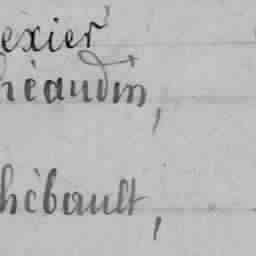 exier
héaudin,
hébault,